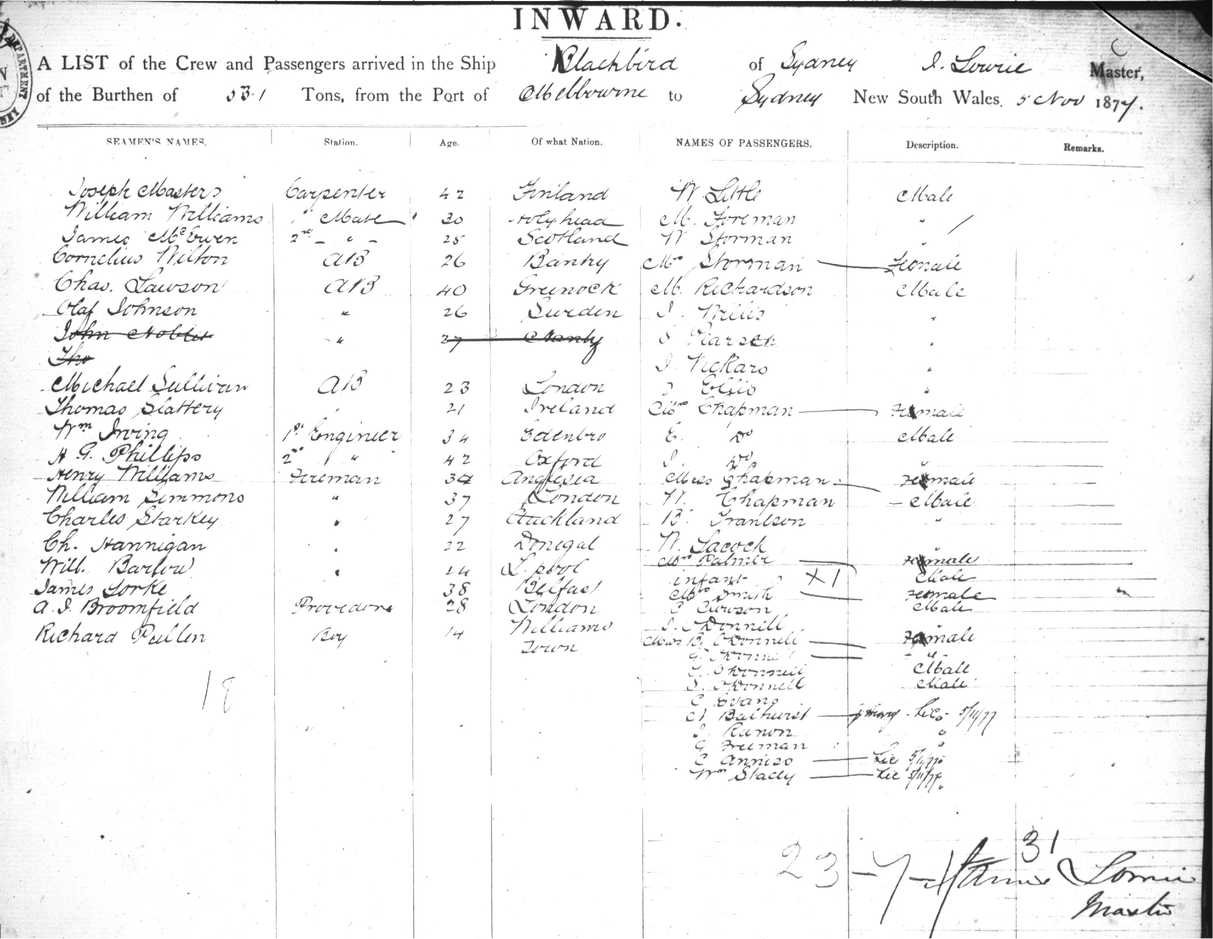 INWARD.
A LIST of the Crew and Passengers arrived in the Ship Blackbird of Sydney J. Lowrie Master,
of the Burthen of 531 Tons, from the Port of Melbourne to Sydney New South Wales, 5 Nov 1877.
SEAMEN'S NAMES. Station. Age. Of what Nation. NAMES OF PASSENGERS. Description. Remarks.
Joseph Masters Carpenter 42 Finland W Little Male
William Williams 1st Mate 30 Holyhead M. Foreman "
James McEwen 2nd - " - 25 Scotland W Storman "
Cornelius Wilton AB 26 Mrs Storman Female
Chas. Lawson AB 40 Greenock M. Richardson Male
Olaf Johnson " 26 Sweden J. Willis "
John " 27 S Pearson "
Tho J. Vickars "
Michael Sullivan AB 23 London J. Ellis "
Thomas Slattery " 21 Ireland Mrs Chapman Female
Wm Irving 1st Engineer 34 Edenbro E. Do Male
H G. Phillips 2nd " 42 Oxford J. Do
Henry Williams Fireman 34 Anglesia Miss Chapman Female
William Simmons " 37 London W. Chapman Male
Charles Starkey " 27 Auckland B. "
Ch. Hannigan " 22 Donegal W Lacock
Will. Barlow " 24 L.pool Mrs Palmer Female
infant X1 Male
James Lorke 38 Belfast Mrs Smith Female
A. J. Broomfield Providore 28 London Male
Richard Pullen Boy 14 Williams Town J. O'Donnell
Miss B. O'Donnell Female
G. O'Donnell "
O'Donnell Male
J. O'Donnell Male
18
C Evans
Bathurst Lic 5/11/77
J. "
G Freeman "
C Anniso Lic 5/11/77
Wm Stacey Lic 5/11/77
23 - 7 - 1 31
James Lowrie
Master